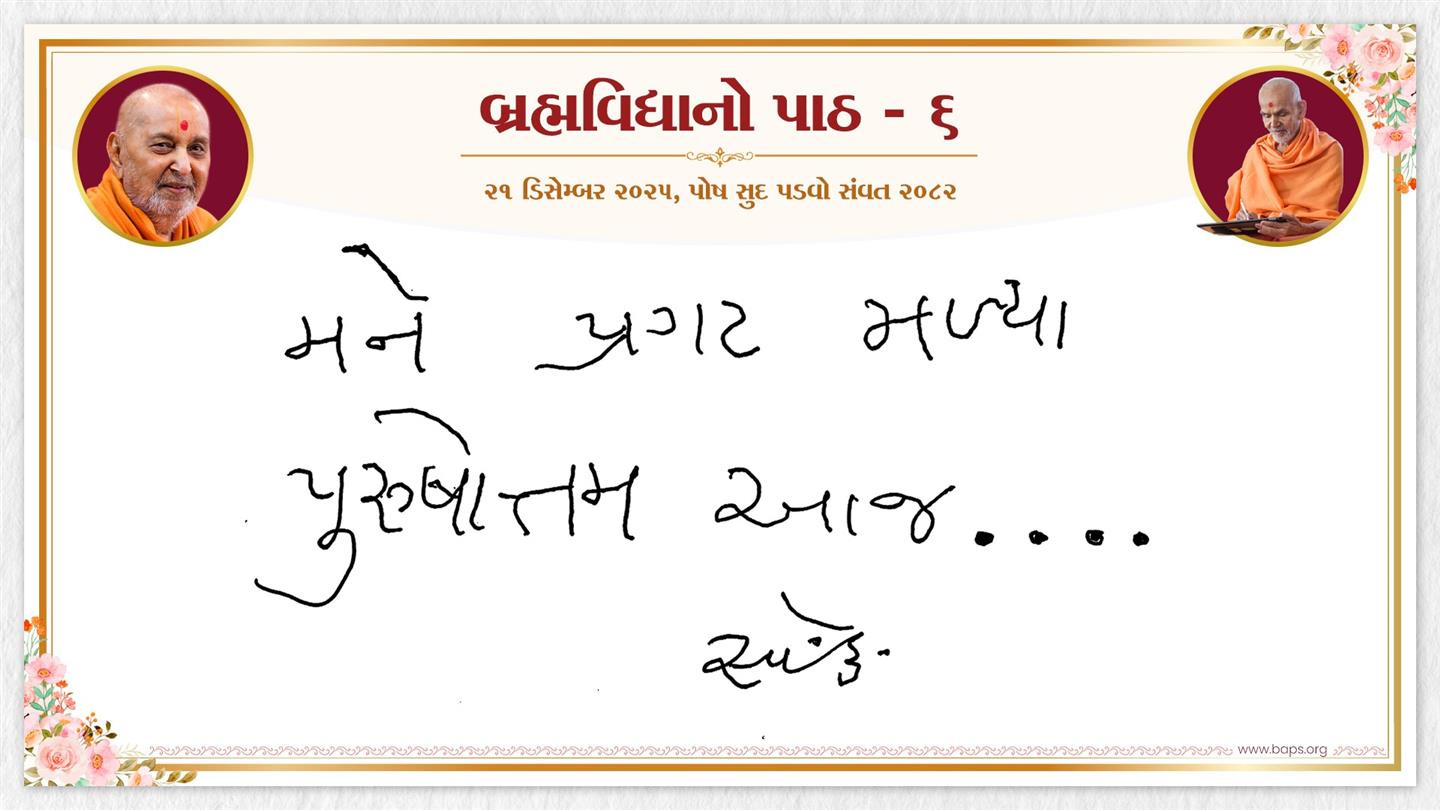 બ્રહ્મવિદ્યાનો પાઠ - ૬
૨૧ ડિસેમ્બર ૨૦૨૫, પોષ સુદ પડવો સંવત ૨૦૮૨
મને પ્રગટ મળ્યા
પુરુષોત્તમ આજ....
www.baps.org